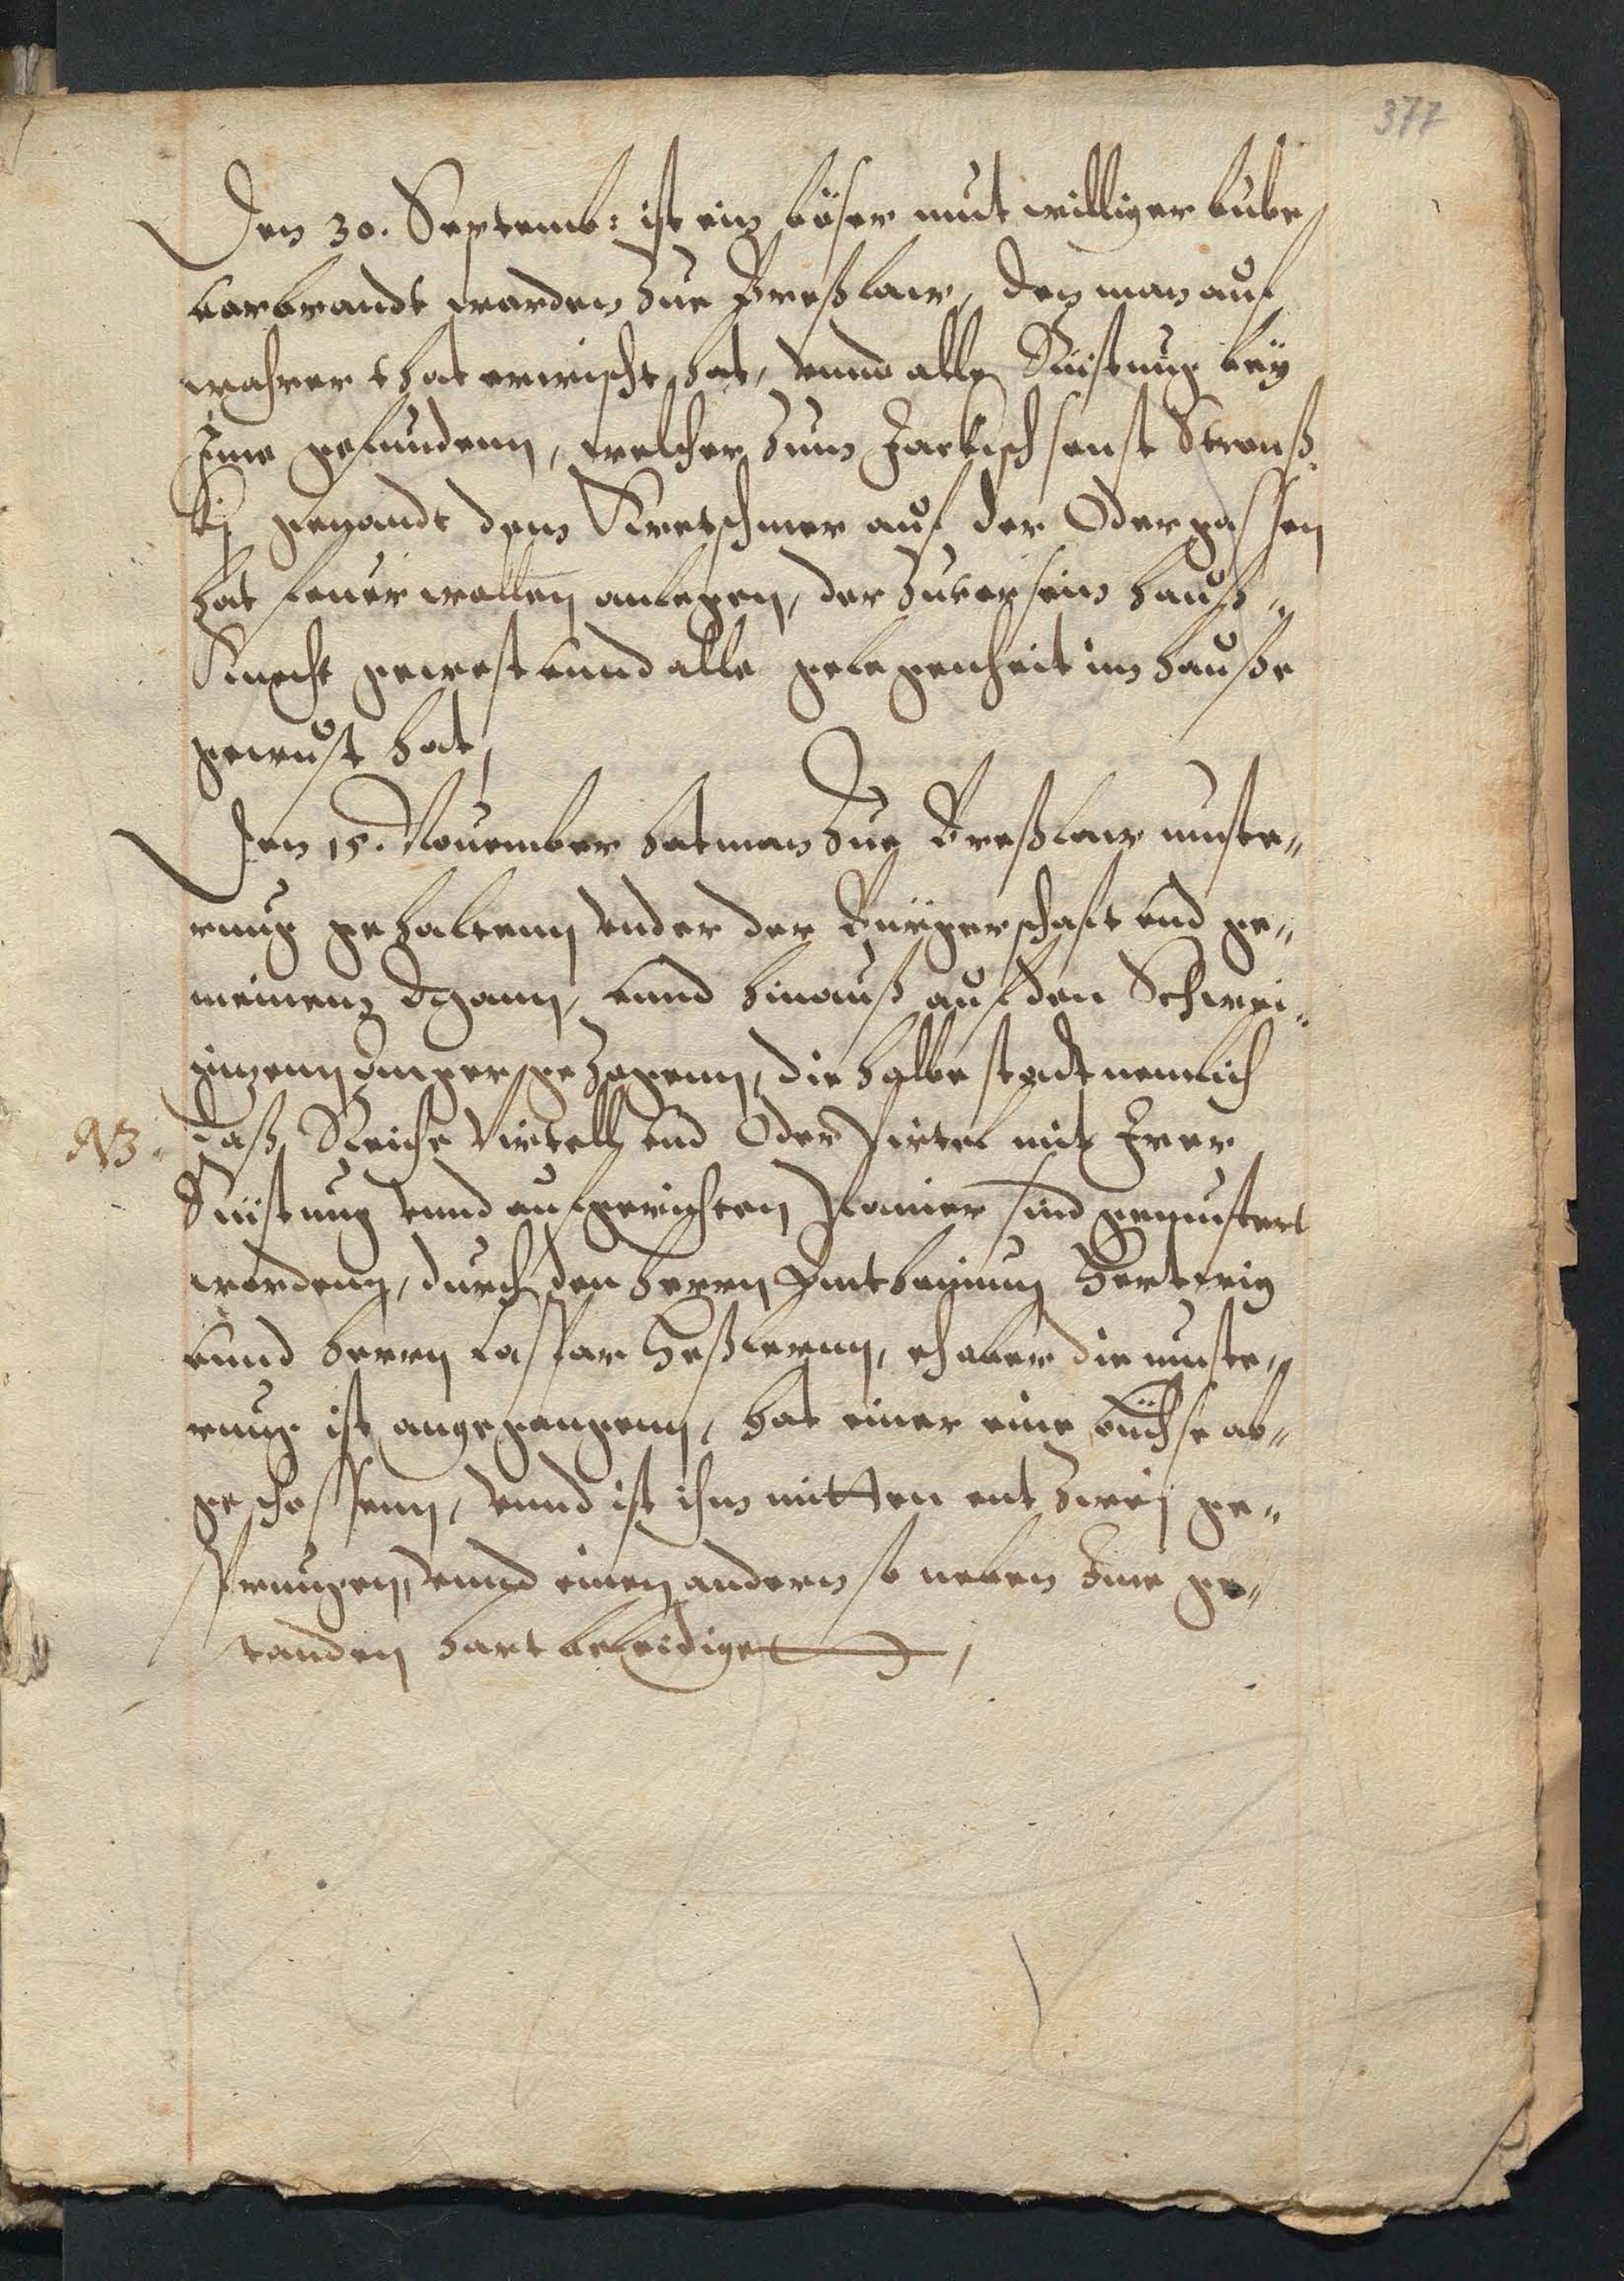 377
Den 30. Septemb: ist ein böser mutwilliger bube
vorbrandt worden zue Breßlaw, den man auf
wahrer that erwischt hat, vnnd alle Rüstung bey
Ime gefundenn, welcher zum sonst
genandt dem Kretschmer auf der Odergassen
hat feuer wollen anlegen, der zuvor sein hauß
Knecht gewest vnnd alle gelegenheit im hauße
gewust hat,
Den 15. Nouember hat man zue Breßlaw muste„
rung gehaltenn vnder der Bürgerschaft vnd ge„
meinenn vnnd hinauß auf den Schwei„
anger gezogenn, die halbe stadt nemlich
NB. daß Reiche Virtell vnd Oder Virtel mit Irer
Rüstung vnnd aufgerichten sind gemustert
wordenn, durch den herrn
vnnd herrn Caspar Heßlernn, eh aber die muste„
rung ist angegangenn, hat einer eine büchse ab„
geschossenn, vnnd ist ihm mitten entzwej ge„
sprungen, vnnd einen andern so neben Ime ge„
standen hart beleidiget,